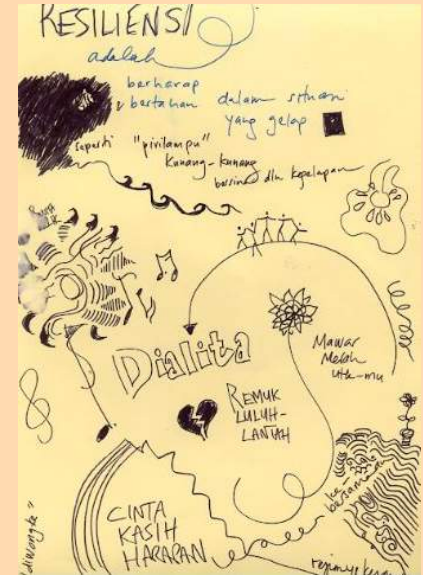 RESILIENSI
adalah
berharap
& bertahan dalam situasi
yang gelap
seperti "pirilampu"
kunang-kunang
bersinar dlm kegelapan
Dialita
Mawar
Merah
utk-mu
REMUK
LULUH-
LANTAH
CINTA
KASIH
HARAPAN
ke-
bersamaan
"diwongke"